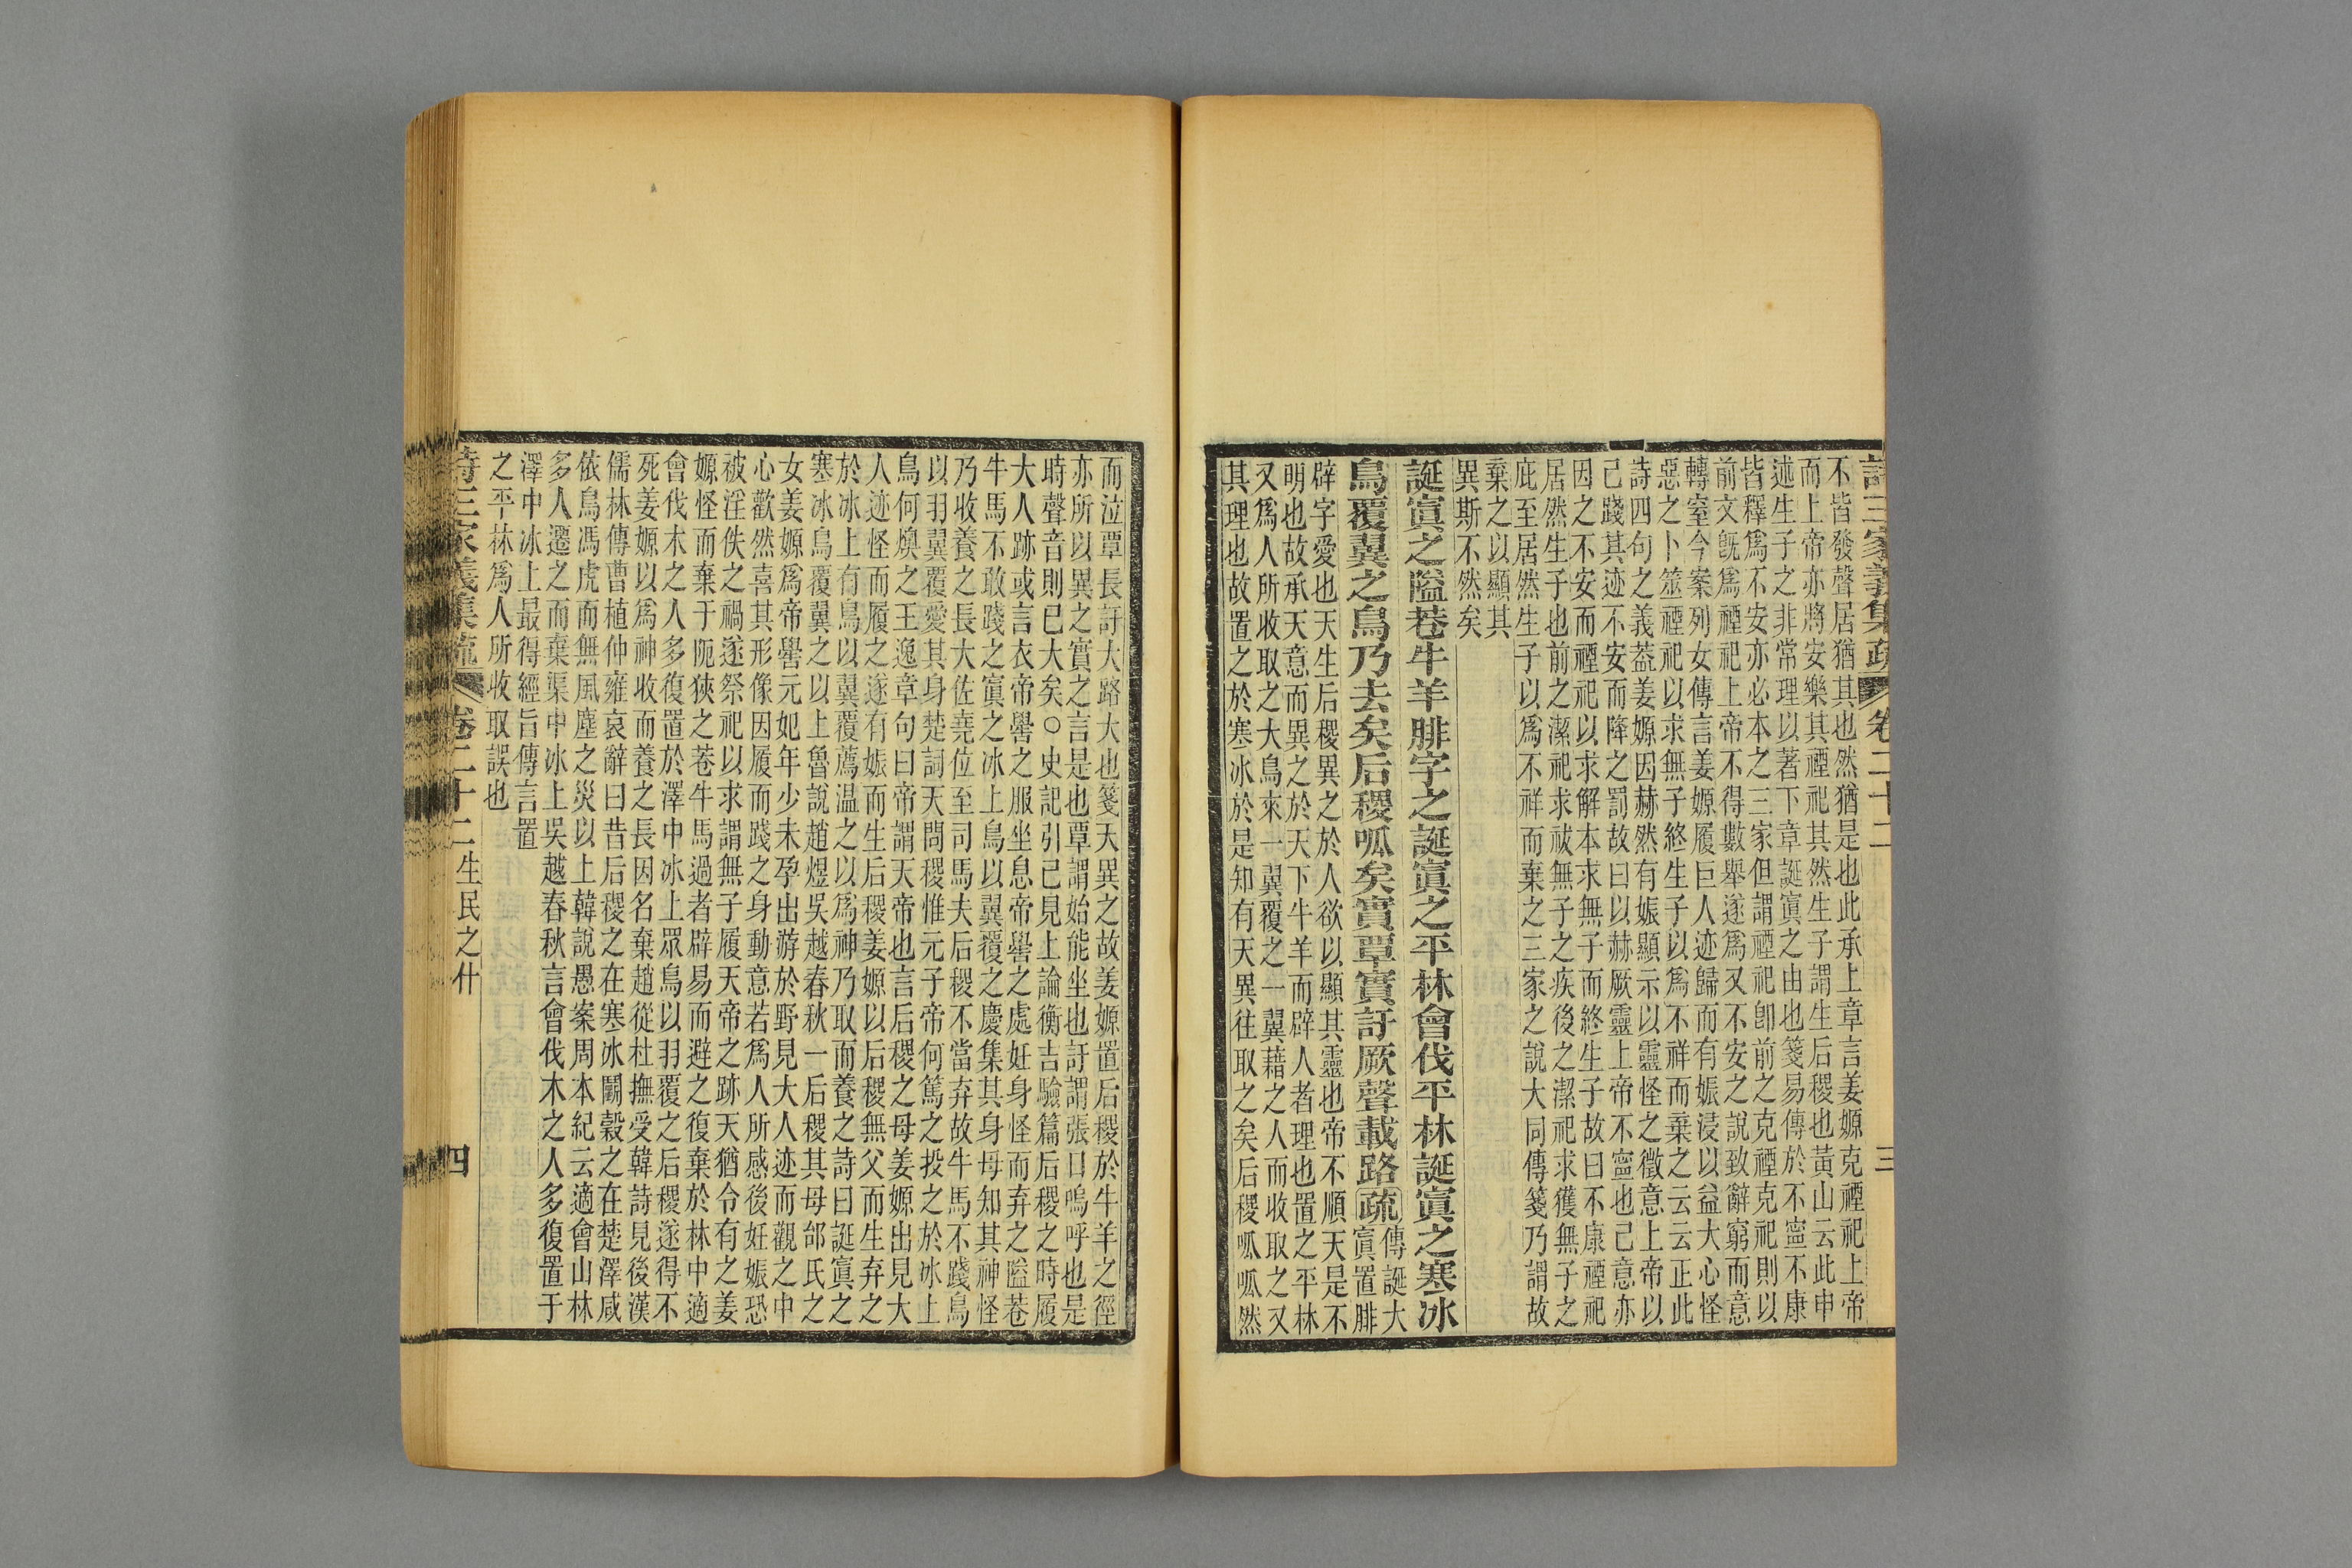 詩三家義集疏 卷二十二 三
不皆發聲居猶其也然猶是也此承上章言姜嫄克禋祀上帝
而上帝亦將安樂其禋祀其然生子謂生后稷也黃山云此申
述生子之非常理以著下章誕寘之由也箋易傳於不寍不康
皆釋爲不安亦必本之三家但謂禋祀卽前之克禋克祀則以
前文旣爲禋祀上帝不得數舉遂爲又不安之說致辭窮而意
轉窒今案列女傳言姜嫄履巨人迹歸而有娠浸以益大心怪
惡之卜筮禋祀以求無子終生子以爲不祥而棄之云云正此
詩四句之義葢姜嫄因赫然有娠顯示以靈怪之徵意上帝以
己踐其迹不安而降之罰故曰以赫厥靈上帝不寍也己意亦
因之不安而禋祀以求解本求無子而終生子故曰不康禋祀
居然生子也前之潔祀求祓無子之疾後之潔祀求獲無子之
庇至居然生子以爲不祥而棄之三家之說大同傳箋乃謂故
棄之以顯其
異斯不然矣
誕寘之隘巷牛羊腓字之誕寘之平林會伐平林誕寘之寒冰
鳥覆翼之鳥乃去矣后稷呱矣實覃實訏厥聲載路疏
傳誕大
寘置腓
辟字愛也天生后稷異之於人欲以顯其靈也帝不順天是不
明也故承天意而異之於天下牛羊而辟人者理也置之平林
又爲人所收取之大鳥來一翼覆之一翼藉之人而收取之又
其理也故置之於寒冰於是知有天異往取之矣后稷呱呱然
而泣覃長訏大路大也箋天異之故姜嫄置后稷於牛羊之徑
亦所以異之實之言是也覃謂始能坐也訏謂張口嗚呼也是
時聲音則已大矣○史記引己見上論衡吉驗篇后稷之時履
大人跡或言衣帝嚳之服坐息帝嚳之處妊身怪而弃之隘巷
牛馬不敢踐之寘之冰上鳥以翼覆之慶集其身母知其神怪
乃收養之長大佐堯位至司馬夫后稷不當弃故牛馬不踐鳥
以羽翼覆愛其身楚詞天問稷惟元子帝何篤之投之於冰上
鳥何燠之王逸章句曰帝謂天帝也言后稷之母姜嫄出見大
人迹怪而履之遂有娠而生后稷姜嫄以后稷無父而生弃之
於冰上有鳥以翼覆薦溫之以爲神乃取而養之詩曰誕寘之
寒冰鳥覆翼之以上魯說趙煜吳越春秋一后稷其母邰氏之
女姜嫄爲帝嚳元妃年少未孕出游於野見大人迹而觀之中
心歡然喜其形像因履而踐之身動意若爲人所感後妊娠恐
被淫佚之禍遂祭祀以求謂無子履天帝之跡天猶令有之姜
嫄怪而棄于阨狹之巷牛馬過者辟易而避之復棄於林中適
會伐木之人多復置於澤中冰上眾鳥以羽覆之后稷遂得不
死姜嫄以爲神收而養之長因名棄趙從杜撫受韓詩見後漢
儒林傳曹植仲雍哀辭曰昔后稷之在寒冰鬭穀之在楚澤咸
依鳥馮虎而無風塵之災以上韓說愚案周本紀云適會山林
多人遷之而棄渠中冰上吳越春秋言會伐木之人多復置于
澤中冰上最得經旨傳言置
之平林爲人所收取誤也
詩三家義集疏 卷二十二 生民之什 四